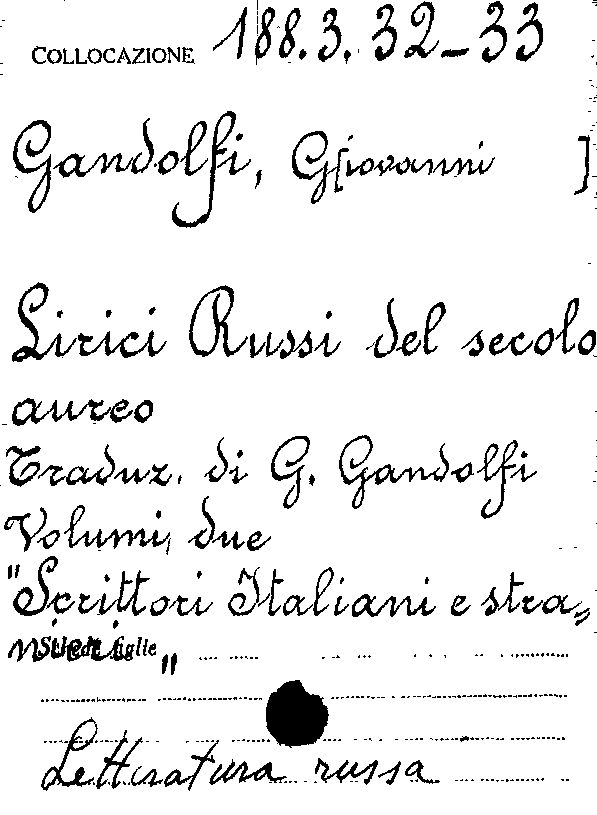 COLLOCAZIONE 188.3.32-33
Gandolfi, G[iovanni ]
Lirici Russi del secolo
aureo
Traduz. di G. Gandolfi
Volumi, due
"Scrittori Italiani e stra„
nieri„
Schede figlie
Letteratura russa